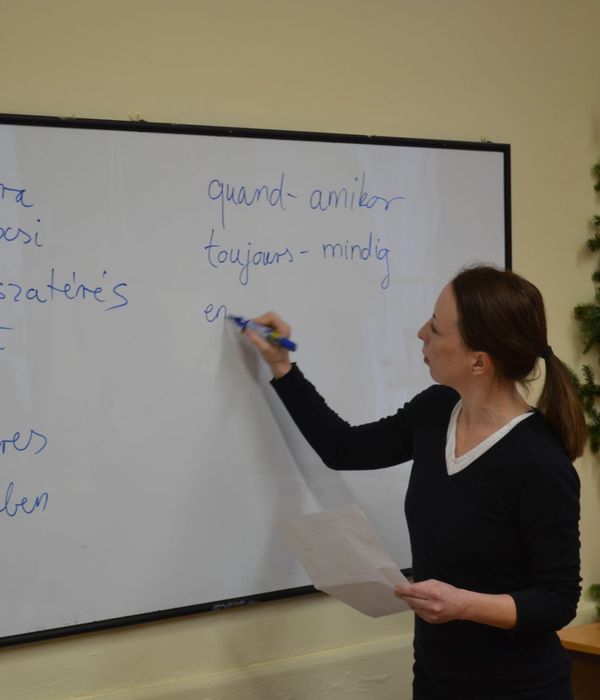 ra
ocsi
szatérés
res
ben
quand - amikor
toujours - mindig
en